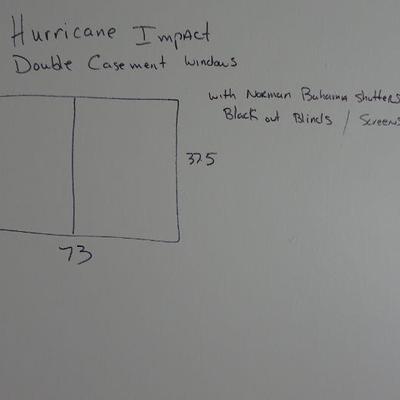 Hurricane Impact
Double Casement Windows
with Norman Bahama Shutters
Black out Blinds / Screens
37.5
73